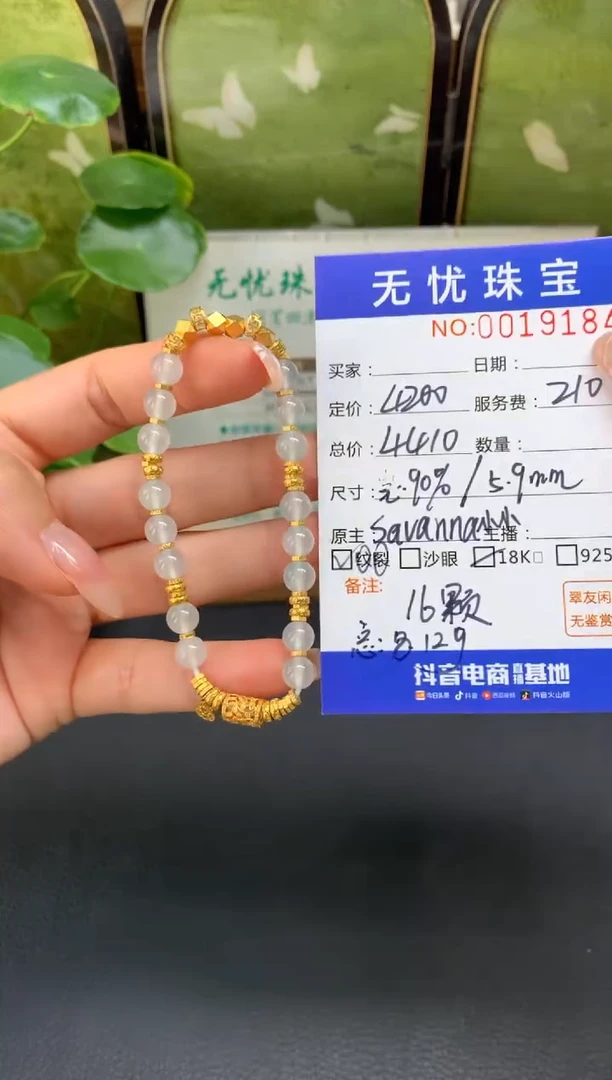 无忧珠
无忧珠宝
NO:0019184
买家: 日期:
定价: 4200 服务费: 210
总价: 4410 数量:
尺寸: 90% / 5.9mm
原主: Savanna 主播:
纹裂 沙眼 18K 925
备注:
16颗
翠友闲
无鉴赏
129
抖音电商直播基地
今日头条 抖音 西瓜视频 抖音火山版